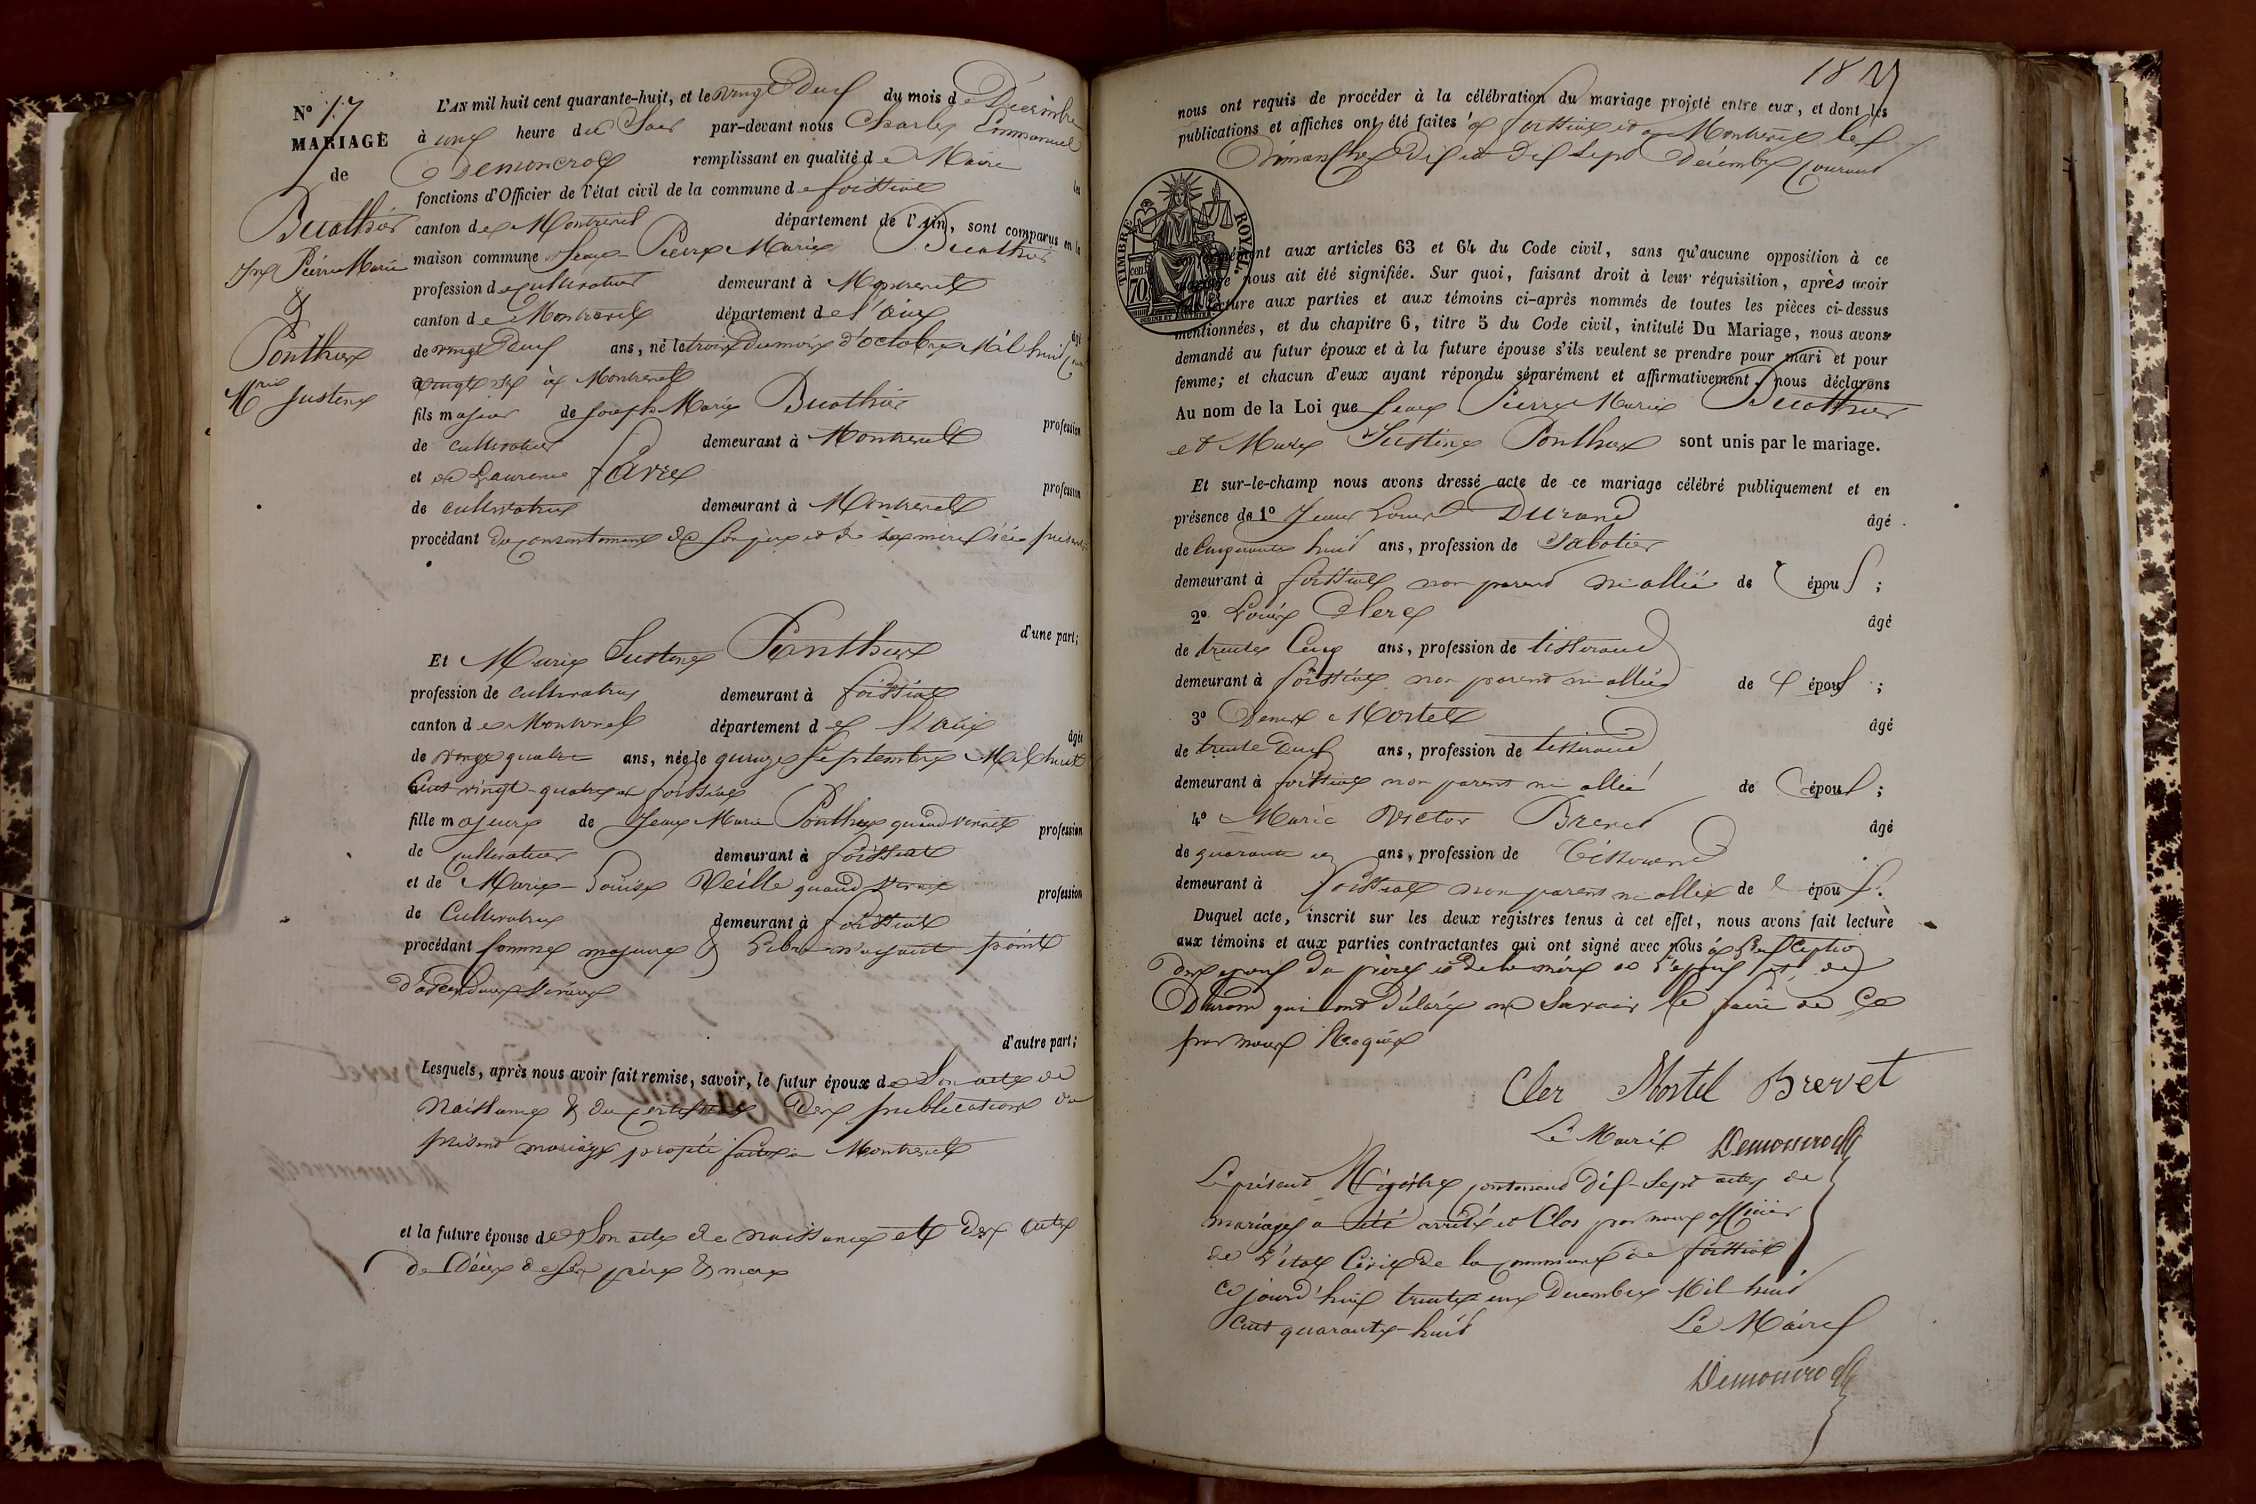 N° 17
MARIAGE
de
Buathier
Jn Pierre Marie
&
Ponthus
Mrie Justine
L'AN mil huit cent quarante-huit, et le vingt Deux du mois de Décembre
à une heure du Soir par-devant nous Charles Emmanuel
Demoncroq remplissant en qualité de Maire les
fonctions d'Officier de l'état civil de la commune de foissiat
canton de Montrevel département de l'Ain, sont comparus en la
maison commune Jean Pierre Marie Buathier
profession de cultivateur demeurant à Montrevel
canton de Montrevel département de l'ain âgé
de vingt Deux ans, né le trois Du mois d'octobre Mil huit Cent
vingt six à Montrevel
fils majeur de Joseph Marie Buathier profession
de cultivateur demeurant à Montrevel
et de Laurence favre profession
de cultivatrice demeurant à Montrevel
procédant du consentement de son père et de sa mère ici présents
d'une part;
Et Marie Justine Ponthus
profession de cultivatrice demeurant à foissiat
canton de Montrevel département de l'ain âgée
de vingt quatre ans, née le quinze septembre Mil huit
Cent vingt-quatre à foissiat
fille majeure de Jean Marie Ponthus quand vivait profession
de cultivateur demeurant à foissiat
et de Marie-Louise Veille quand vivait profession
de Cultivatrice demeurant à foissiat
procédant comme majeure & libre n'ayant point
d'ascendans
d'autre part;
Lesquels, après nous avoir fait remise, savoir, le futur époux de Son acte de
Naissance & du certificat Des publications du
présent mariage projeté faites à Montrevel
et la future épouse de Son acte de naissance et Des actes
de Décès de ses père & mere
18
nous ont requis de procéder à la célébration du mariage projeté entre eux, et dont les
publications et affiches ont été faites à foissiat et à Montrevel les
Dimanches Dix et Dix Sept Décembre Courant
TIMBRE ROYAL
70
conformément aux articles 63 et 64 du Code civil, sans qu'aucune opposition à ce
mariage nous ait été signifiée. Sur quoi, faisant droit à leur réquisition, après avoir
lecture aux parties et aux témoins ci-après nommés de toutes les pièces ci-dessus
mentionnées, et du chapitre 6, titre 5 du Code civil, intitulé Du Mariage, nous avons
demandé au futur époux et à la future épouse s'ils veulent se prendre pour mari et pour
femme; et chacun d'eux ayant répondu séparément et affirmativement, nous déclarons
Au nom de la Loi que Jean Pierre Marie Buathier
et Marie Justine Ponthus sont unis par le mariage.
Et sur-le-champ nous avons dressé acte de ce mariage célébré publiquement et en
présence de 1° Jean Louis Durand âgé
de Cinquante huit ans, profession de Sabotier
demeurant à foissiat non parent ni allié des époux;
2° Louis Clerc âgé
de trente Cinq ans, profession de tisserand
demeurant à foissiat non parent ni allié des époux;
3° Denis Mortel âgé
de trente Deux ans, profession de tisserand
demeurant à foissiat non parent ni allié des époux;
4° Marie Victor Brevet âgé
de quarante un ans, profession de tisserand
demeurant à foissiat non parent ni allié des époux.
Duquel acte, inscrit sur les deux registres tenus à cet effet, nous avons fait lecture
aux témoins et aux parties contractantes qui ont signé avec nous à l'exception
des epoux du père et de la mère de l'epoux et de
Durand qui ont déclaré ne Savoir le faire de Ce
par nous Requis
Cler Mortel Brevet
Le Maire Demoncroq
Le présent Régistre contenant Dix-Sept actes de
mariages a été arrêté et Clos par nous officier
de l'état Civil de la commune de foissiat
ce jourd'hui trente un Decembre Mil huit
Cent quarante-huit Le Maire
Demoncroq